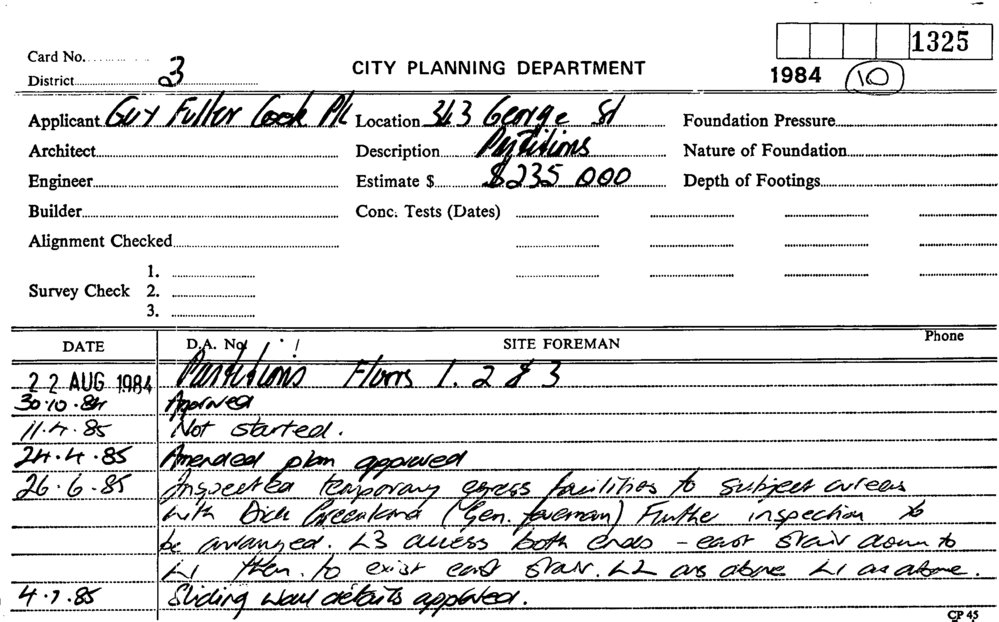 Card No.
1325
District 3
CITY PLANNING DEPARTMENT
1984 10
Applicant Guy Fuller Cook P/L Location 343 George St Foundation Pressure
Architect Description Partitions Nature of Foundation
Engineer Estimate $ $235 000 Depth of Footings
Builder Conc. Tests (Dates)
Alignment Checked
1.
Survey Check 2.
3.
DATE D.A. No. SITE FOREMAN Phone
22 AUG 1984 Partitions Floors 1. 2 & 3
30.10.84 Approved
11.4.85 Not started.
24.4.85 Amended plan approved
26.6.85 Inspected temporary egress facilities to subject areas
with Dick (Gen. foreman) Further inspection to
be arranged. L3 access both ends - east stair down to
L1 then to exist east stair. L2 as above L1 as above.
4.7.85 Sliding wall details approved.
CP 45